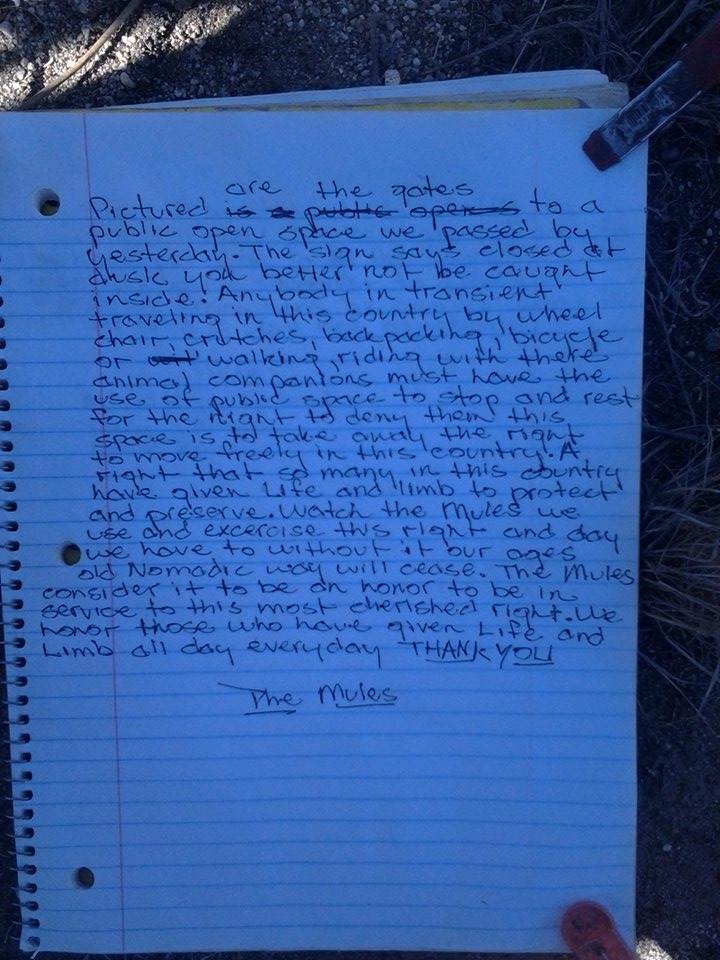 are the gates
Pictured is a public opens to a
public open space we passed by
yesterday. The sign says closed at
dusk you better not be caught
inside. Anybody in transient
traveling in this country by wheel
chair, crutches, backpacking, bicycle
or walking, riding with there
animal companions must have the
use of public space to stop and rest
for the right to deny them this
space is to take away the right
to move freely in this country. A
right that so many in this country
have given Life and limb to protect
and preserve. Watch the Mules we
use and excercise this right and day
we have to without it our ages
old Nomadic way will cease. The Mules
consider it to be an honor to be in
service to this most cherished right. We
honor those who have given Life and
Limb all day everyday THANK YOU
The Mules